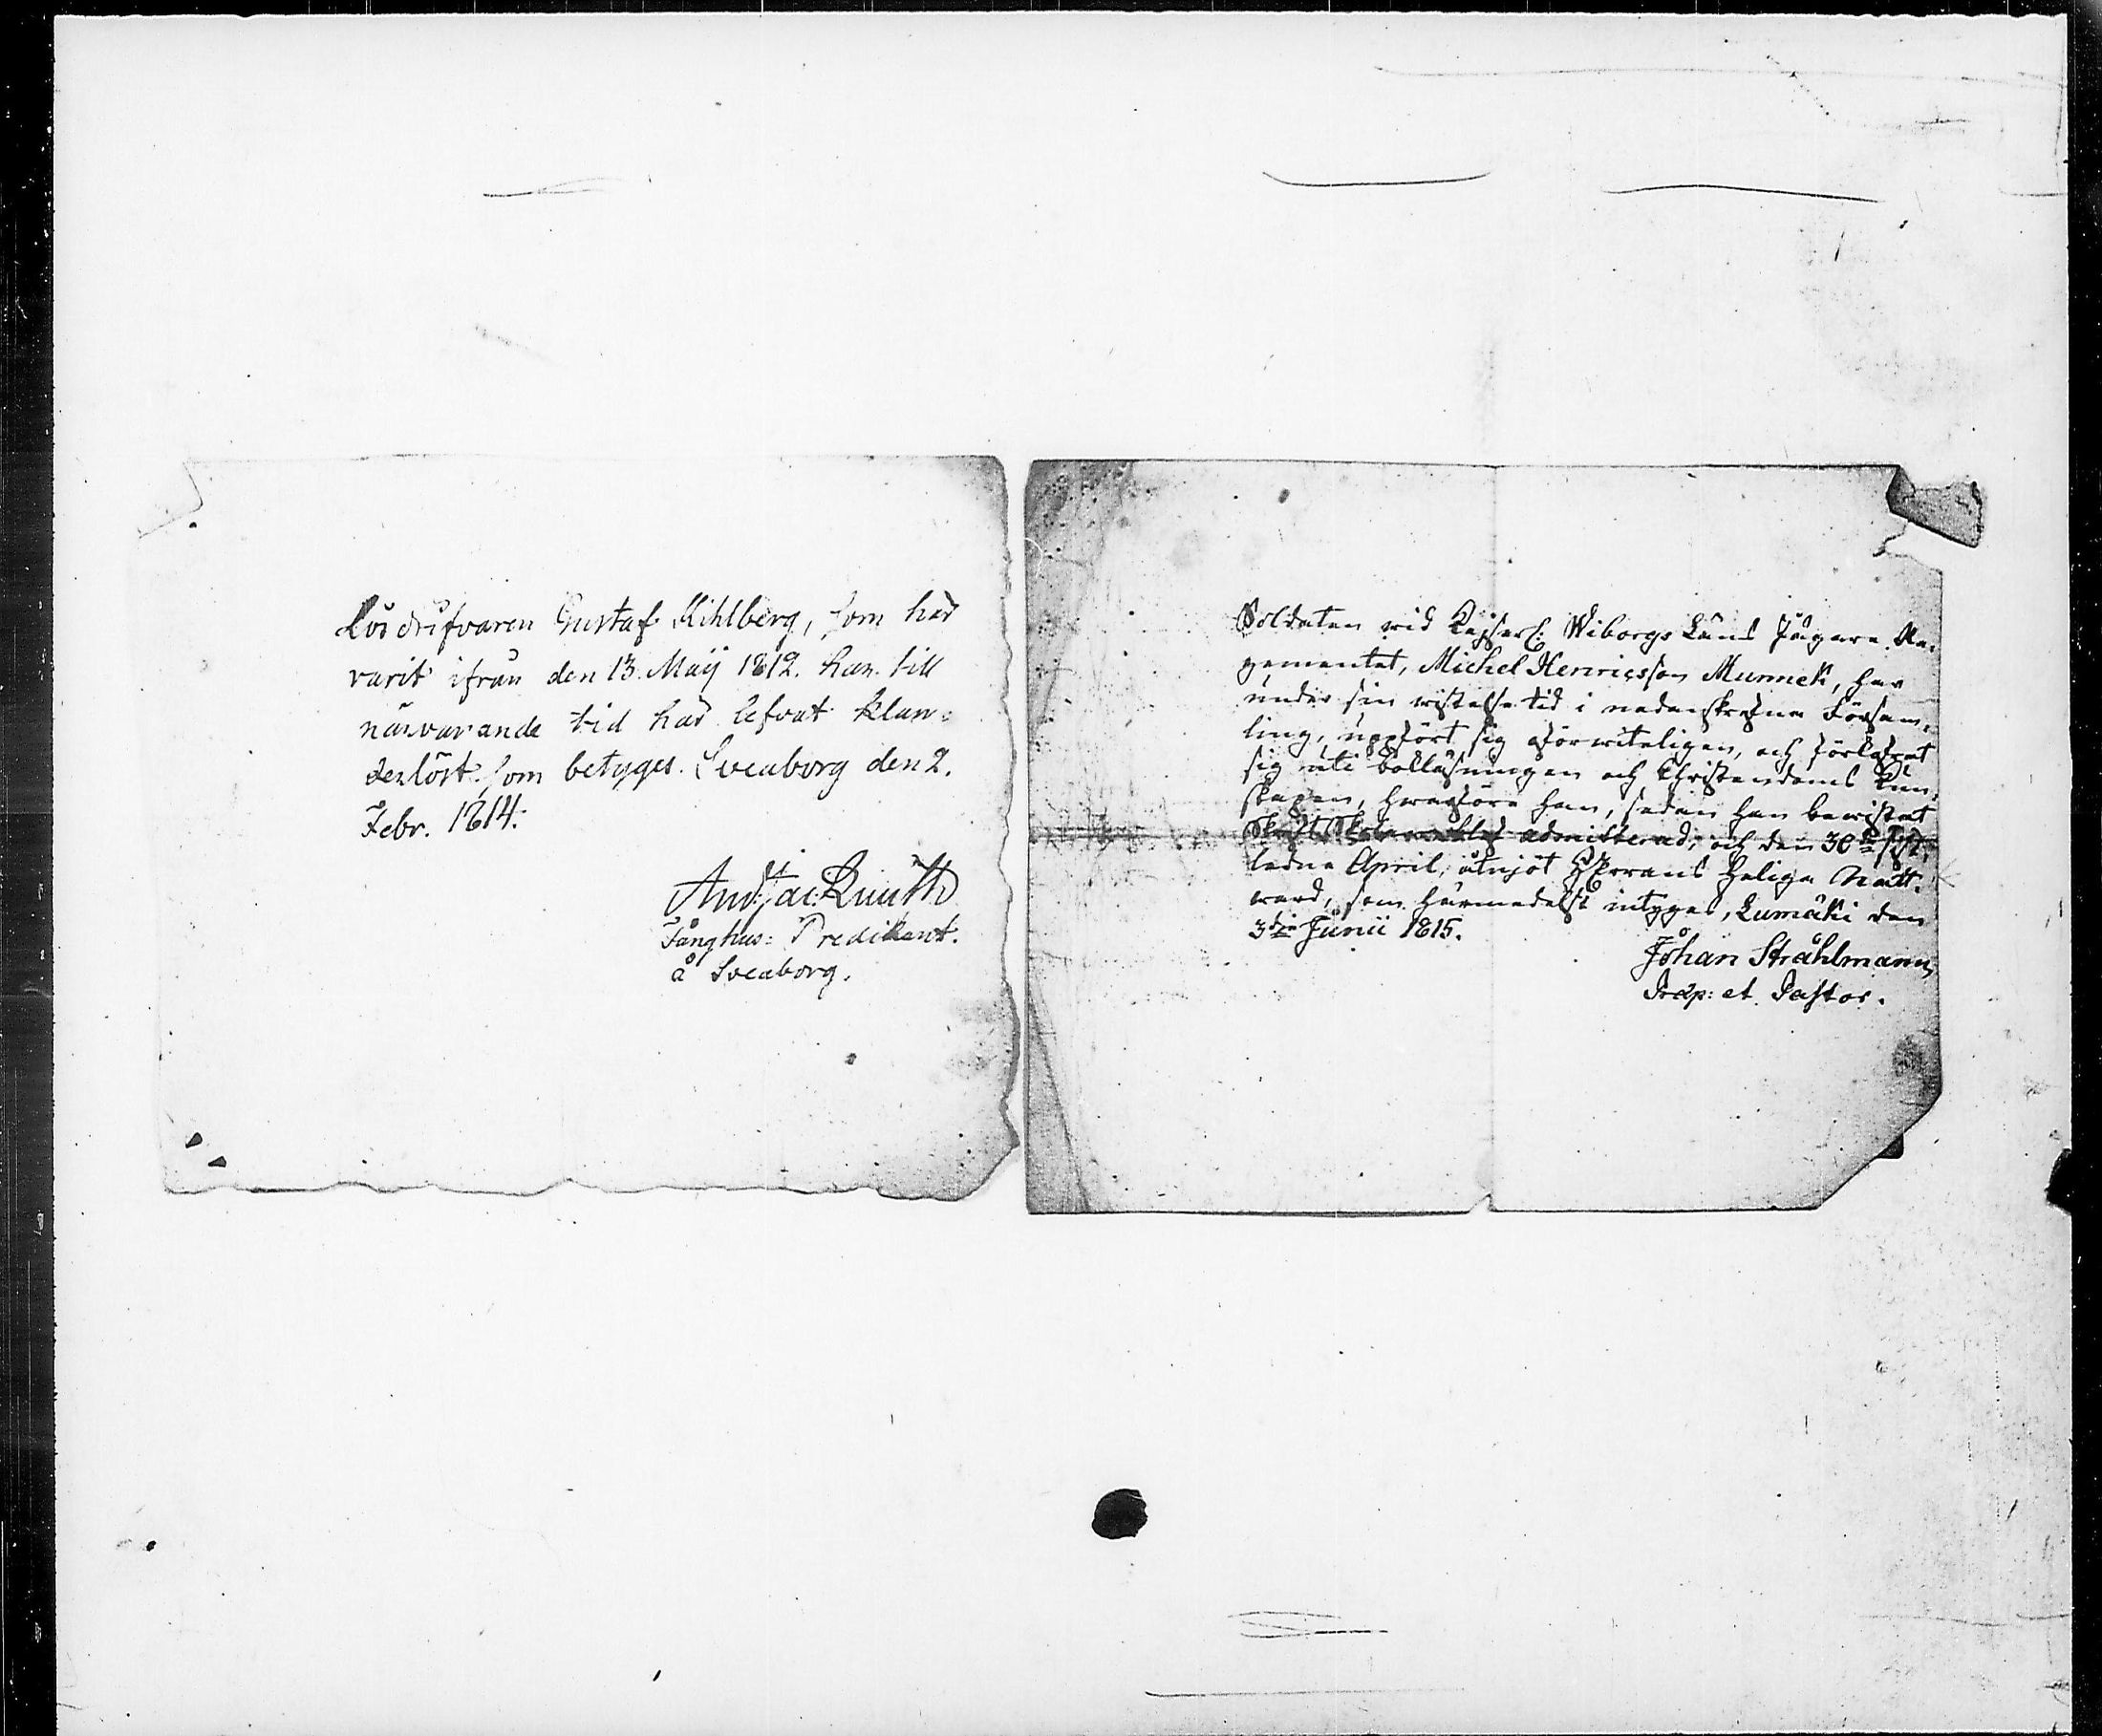 Lösdrifvaren Gustaf Kihlberg, som här
varit ifrån den 13. Maij 1812. har till
närvarande tid här lefvat klan=
derlöst. som betyges. Sveaborg den 2.
Febr. 1814.
And: Jac:
Fånghus= Predikant.
å Sveaborg.
Soldaten wid Kejserl: Wiborgs Läns Jägare Re-
gementet, Michel Henricsson Munnek, har
under sin wistelse tid i nedanskrefne Försam-
ling, uppfört sig oförwiteligen, och förkofrat
sig uti bokläsningen och Christendoms Kun-
skapen, hwarföre han, sedan han bewistat
Skrift Skolan admitterad, och den 30de sist-
ledne April, åtnjöt HErrans Heliga Natt-
ward, som härmedelst intygas, Lumäki den
3die Junii 1815.
Johan Stråhlmann,
Præp: et Pastor.